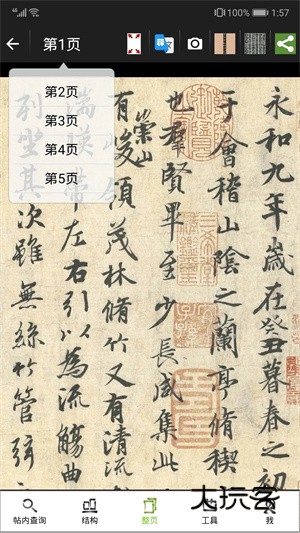 100% 1:57
第1页
第2页
第3页
第4页
第5页
永和九年歲在癸丑暮春之初
于會稽山陰之蘭亭脩稧
也羣賢畢至少長咸集此
有崇山峻領茂林脩竹又有清流
湍暎帶左右引以為流觴曲
列坐其次雖無絲竹管弦
大玩客
帖内查询
结构
整页
工具
我